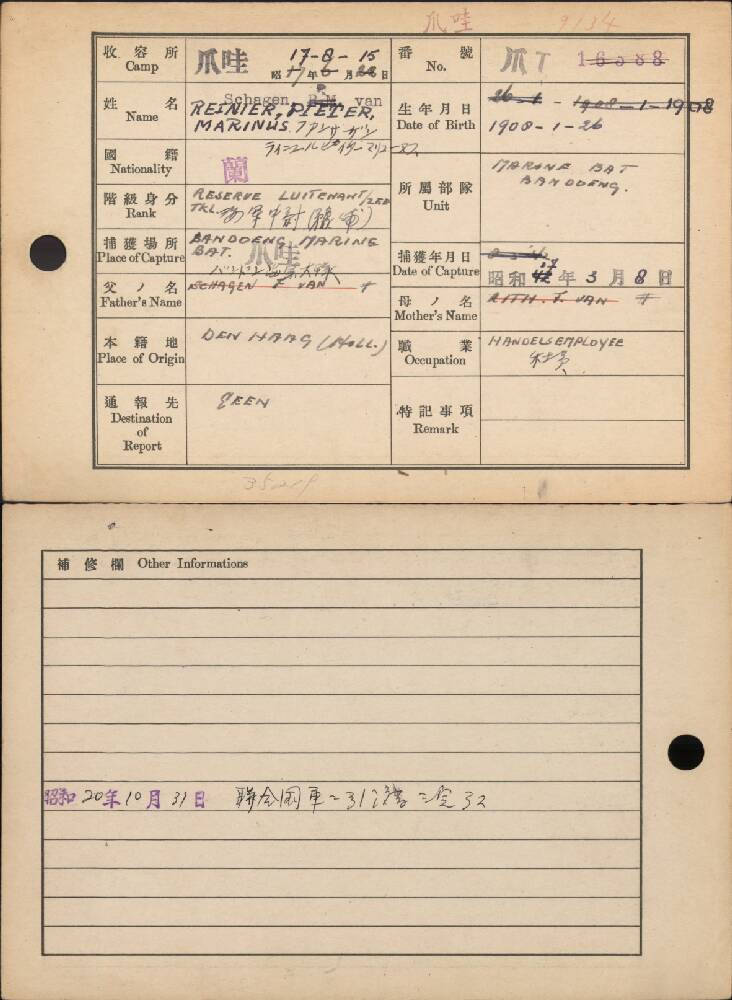 爪哇 9134
收容所
Camp
爪哇
17-8-15
昭 17 年 8 月 日
番號
No.
爪 T 16588
姓名
Name
Schagen, R.M. van
REINIER, PIETER,
MARINUS. フアンサーゲン
生年月日
Date of Birth
26-1-1908-1-1908
1908-1-26
國籍
Nationality
蘭
階級身分
Rank
RESERVE LUITENANT/ZEE
TKL. 海軍中尉
所屬部隊
Unit
MARINE BAT
BANDOENG.
捕獲場所
Place of Capture
BANDOENG, MARINE
BAT. 爪哇
バンドン
捕獲年月日
Date of Capture
昭和 17 年 3 月 8 日
父ノ名
Father's Name
SCHAGEN F. VAN
母ノ名
Mother's Name
VAN
本籍地
Place of Origin
DEN HAAG (HOLL.)
職業
Occupation
HANDELSEMPLOYEE
社員
通報先
Destination
of
Report
GEEN
特記事項
Remark
補修欄 Other Informations
昭和 20 年 10 月 31 日 聯合国軍ニ引渡ニ